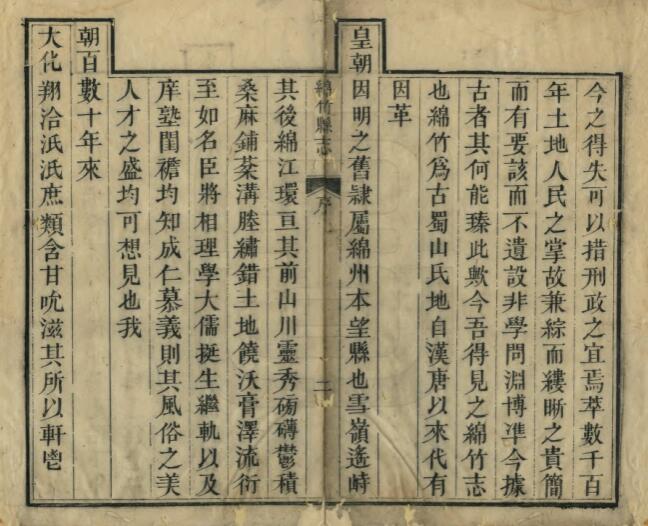 今之得失可以措刑政之宜焉萃數千百
年土地人民之掌故兼綜而縷晰之貴簡
而有要該而不遺設非學問淵博凖今據
古者其何能臻此歟今吾得見之綿竹志
也綿竹爲古蜀山氏地自漢唐以來代有
因革
皇朝因明之舊隷屬綿州本望縣也雪嶺遙峙
綿竹縣志
序
二
其後綿江環亘其前山川靈秀磅礴鬱積
桑麻鋪棻溝塍繡錯土地饒沃膏澤流衍
至如名臣將相理學大儒挺生繼軌以及
庠塾閨襜均知成仁慕義則其風俗之美
人才之盛均可想見也我
朝百數十年來
大化翔洽汦汦庶類含甘吮滋其所以軒鬯